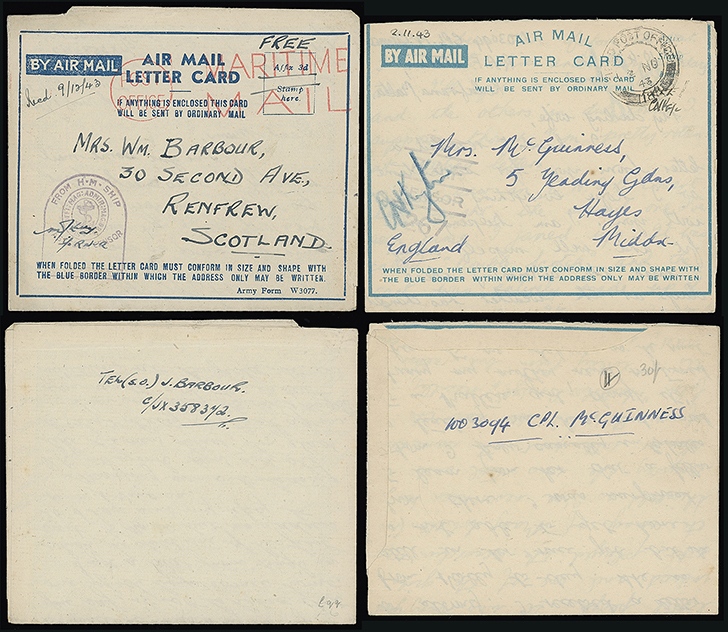 FREE
BY AIR MAIL
AIR MAIL
LETTER CARD
MARITIME
MAIL
POST
OFFICE
Affix 3d
Stamp
here.
Recd. 9/12/43
IF ANYTHING IS ENCLOSED THIS CARD
WILL BE SENT BY ORDINARY MAIL
MRS. WM. BARBOUR,
30 SECOND AVE.,
RENFREW,
SCOTLAND.
FROM H.M. SHIP
WHEN FOLDED THE LETTER CARD MUST CONFORM IN SIZE AND SHAPE WITH
THE BLUE BORDER WITHIN WHICH THE ADDRESS ONLY MAY BE WRITTEN.
Army Form W3077.
2.11.43
BY AIR MAIL
AIR MAIL
LETTER CARD
IF ANYTHING IS ENCLOSED THIS CARD
WILL BE SENT BY ORDINARY MAIL
POST OFFICE
NO
43
Mrs. McGuinness,
5 Yeading Gdns,
Hayes
Middx
England
WHEN FOLDED THE LETTER CARD MUST CONFORM IN SIZE AND SHAPE WITH
THE BLUE BORDER WITHIN WHICH THE ADDRESS ONLY MAY BE WRITTEN
TEL(S.O.) J. BARBOUR.
C/JX358372.
11
30/-
1003094 CPL. McGUINNESS